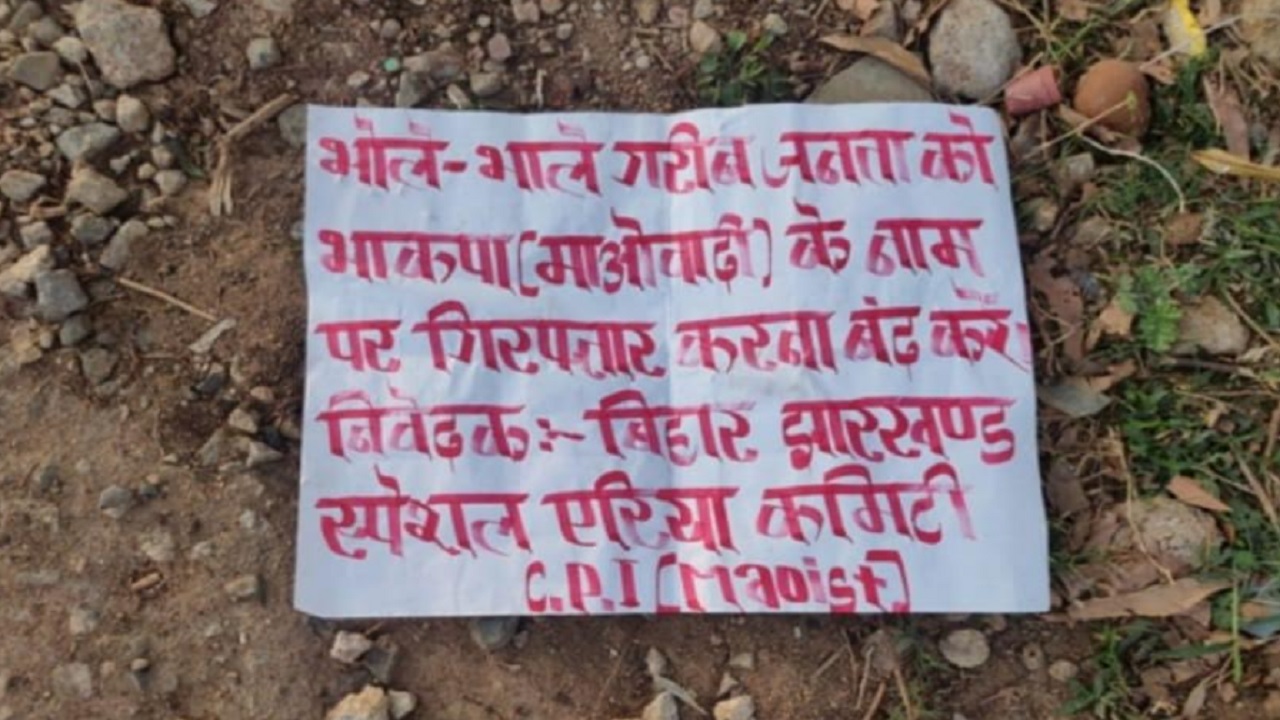 भोले-भाले गरीब जनता को
भाकपा(माओवादी) के नाम
पर गिरफ्तार करना बंद करें
निवेदक:- बिहार झारखण्ड
स्पेशल एरिया कमिटी
C.P.I (Maoist)